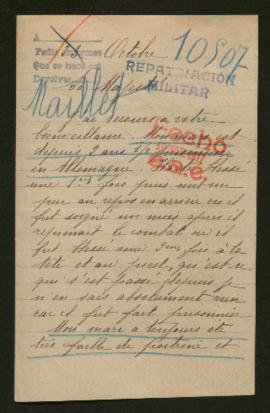 A
Pedir informes
Que se hace así
Devolver
Octobre
10507
REPATRIACIÓN
MILITAR
Maillet
Sa Majesté
ai recours a votre
bienveillance. Mon mari est
depuis 2 ans prisonnier
en Allemagne blessé
une 1ère fois puis
peu au repos en arrière ou il
fut soigné un mois après il
reprenait le combat ou il
fut blessé une 2me fois à la
tête et au pied, qu'est-ce
qui s'est passer depuis je
n'en sais absolument rien
car il fut fait prisonnier
Mon mari a toujours été
très faible de poitrine et